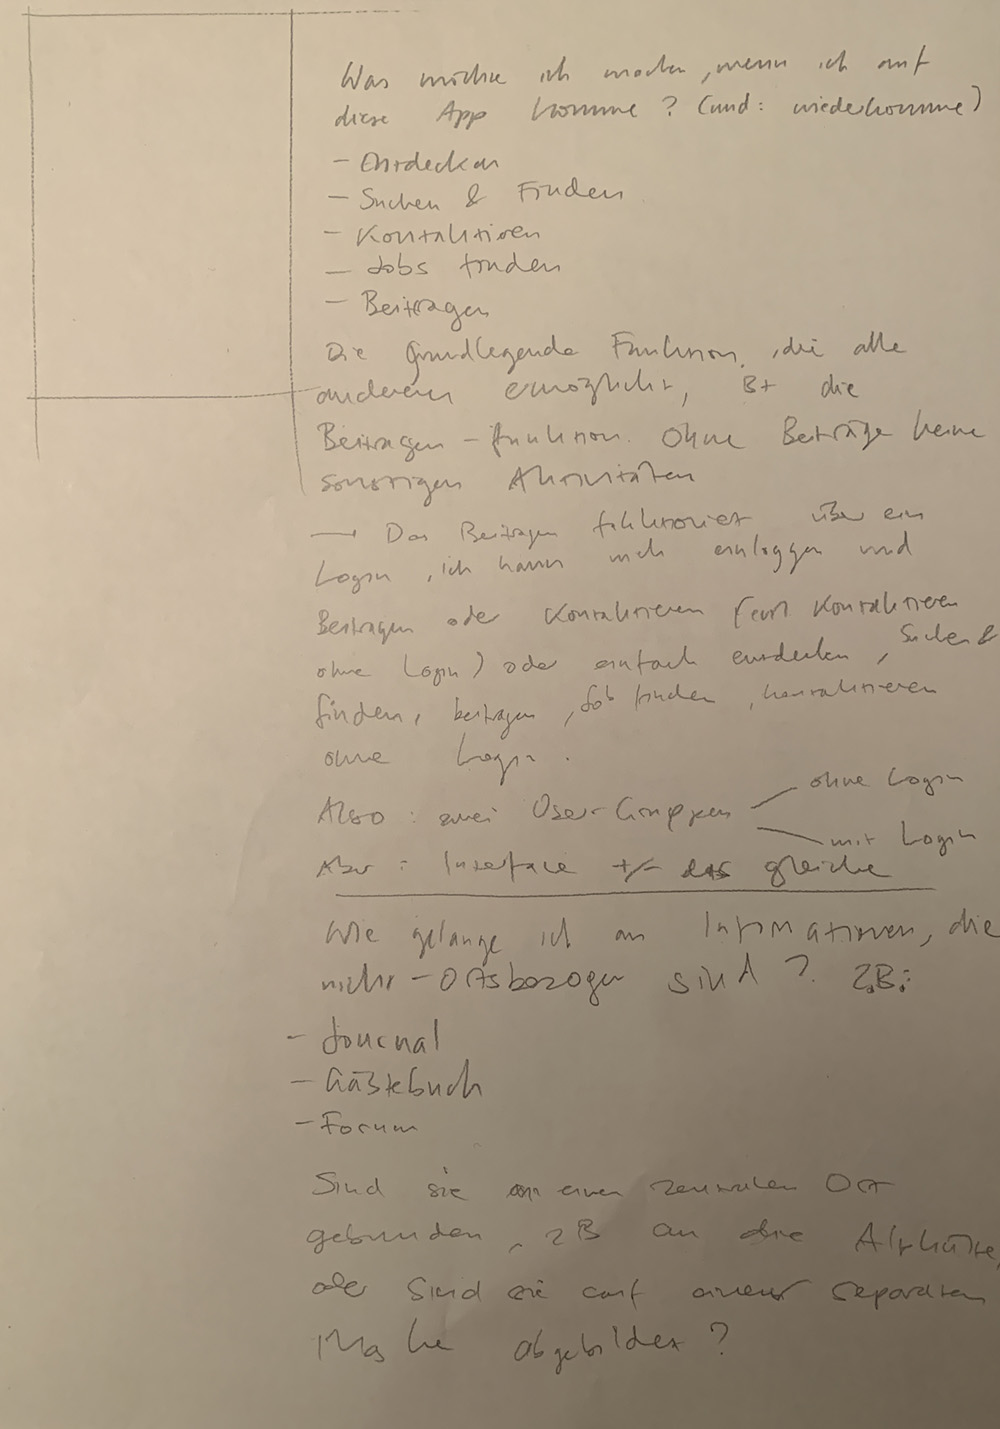 Was möchte ich machen, wenn ich auf
diese App komme? (und: wiederkomme)
- Entdecken
- Suchen & Finden
- Kontaktieren
- Jobs finden
- Beitragen
Die grundlegende Funktion, die alle
anderen ermöglicht, ist die
Beitragen-funktion. Ohne Beiträge keine
sonstigen Aktivitäten
→ Das Beitragen funktioniert über ein
Login, ich kann mich einloggen und
Beitragen oder Kontaktieren (evtl Kontaktieren
ohne Login) oder einfach entdecken, Suchen &
finden, beitragen, Job finden, kontaktieren
ohne Login.
Also: zwei User-Gruppen
ohne Login
mit Login
Aber: Interface +/- das gleiche
Wie gelange ich an Informationen, die
nicht-Ortsbezogen sind? Z.B:
- Journal
- Gästebuch
- Forum
Sind sie an einen zentralen Ort
gebunden, zB an die Alphütte,
oder sind sie auf einer separaten
Maske abgebildet?